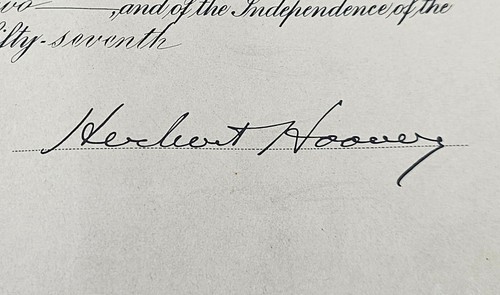 wo———, and of the Independence of the
ifty-seventh
Herbert Hoover